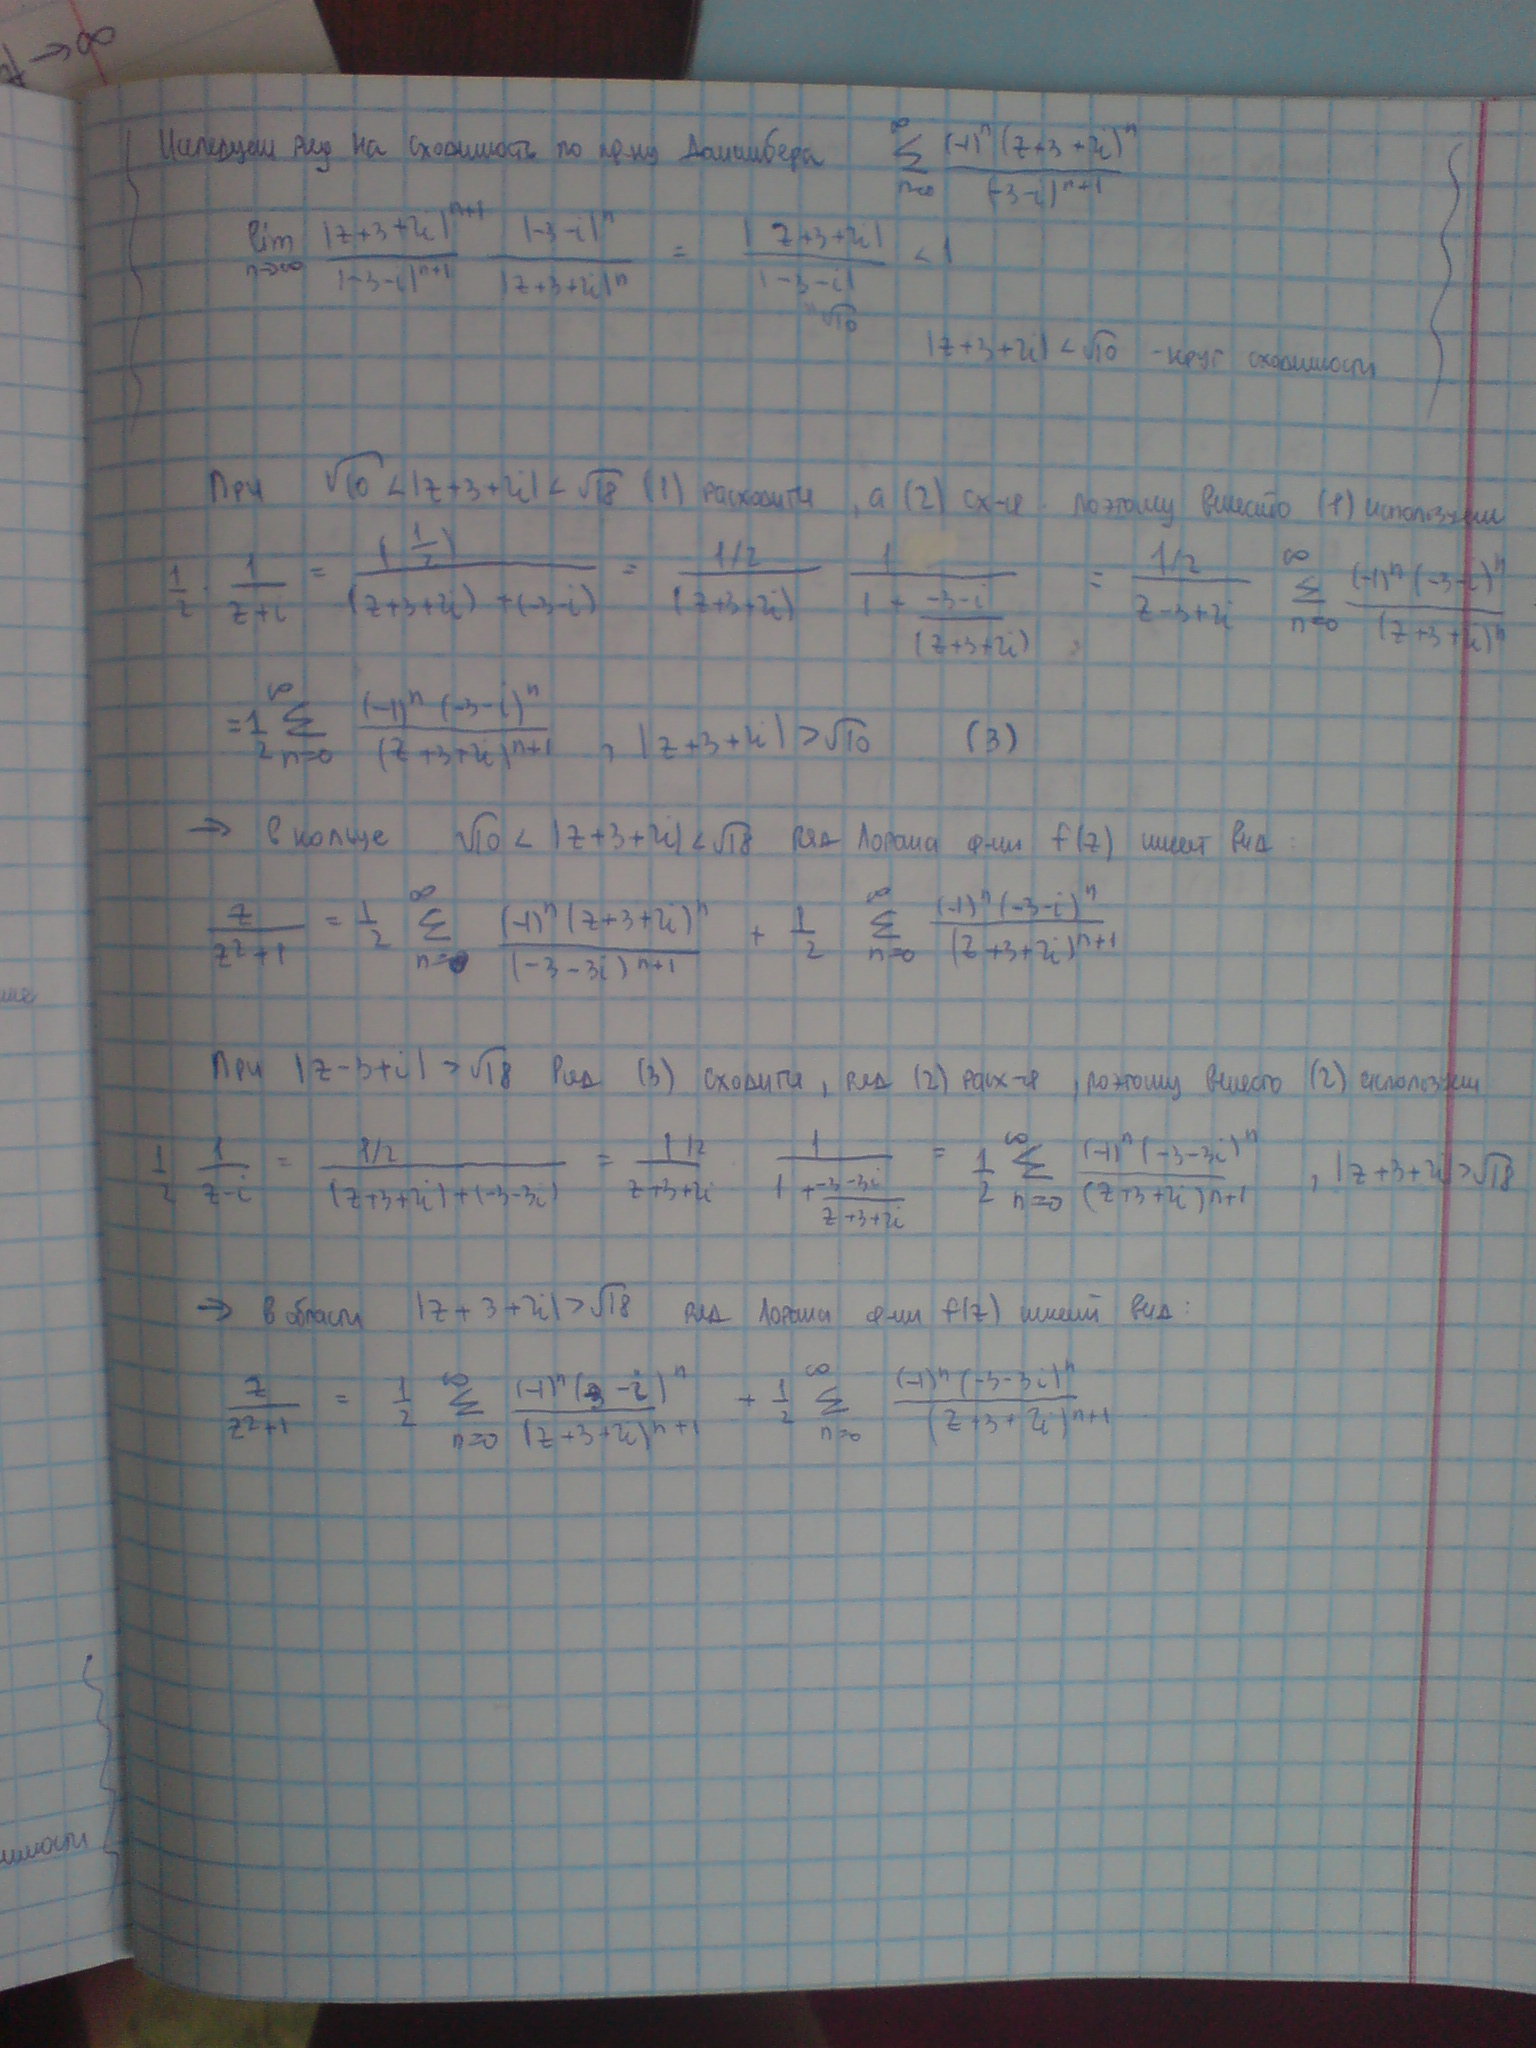 t → ∞
Исследуем ряд на сходимость по пр-ку Даламбера ∑_{n=0}^{∞} (-1)^n (z+3+2i)^n / (-3-i)^{n+1}
lim_{n→∞} |z+3+2i|^{n+1} / |-3-i|^{n+1} |-3-i|^n / |z+3+2i|^n = |z+3+2i| / |-3-i| < 1
"√10
|z+3+2i| < √10 - круг сходимости
При √10 < |z+3+2i| < √18 (1) расходится, а (2) сх-ся. поэтому вместо (1) используем
1/2 · 1/(z+i) = (1/2) / ((z+3+2i) + (-3-i)) = 1/2 / (z+3+2i) 1 / (1 + (-3-i)/(z+3+2i)) = 1/2 / (z-3+2i) ∑_{n=0}^{∞} (-1)^n (-3-i)^n / (z+3+2i)^n
= 1/2 ∑_{n=0}^{∞} (-1)^n (-3-i)^n / (z+3+2i)^{n+1} , |z+3+2i| > √10 (3)
→ в кольце √10 < |z+3+2i| < √18 ряд Лорана ф-ии f(z) имеет вид:
z/(z²+1) = 1/2 ∑_{n=0}^{∞} (-1)^n (z+3+2i)^n / (-3-3i)^{n+1} + 1/2 ∑_{n=0}^{∞} (-1)^n (-3-i)^n / (z+3+2i)^{n+1}
При |z-3+i| > √18 Ряд (3) сходится, ряд (2) расх-ся, поэтому вместо (2) используем
1/2 1/(z-i) = 1/2 / ((z+3+2i)+(-3-3i)) = 1/2 / (z+3+2i) 1 / (1 + (-3-3i)/(z+3+2i)) = 1/2 ∑_{n=0}^{∞} (-1)^n (-3-3i)^n / (z+3+2i)^{n+1} , |z+3+2i| > √18
→ в области |z+3+2i| > √18 ряд Лорана ф-ии f(z) имеет вид:
z/(z²+1) = 1/2 ∑_{n=0}^{∞} (-1)^n (3-i)^n / (z+3+2i)^{n+1} + 1/2 ∑_{n=0}^{∞} (-1)^n (-3-3i)^n / (z+3+2i)^{n+1}